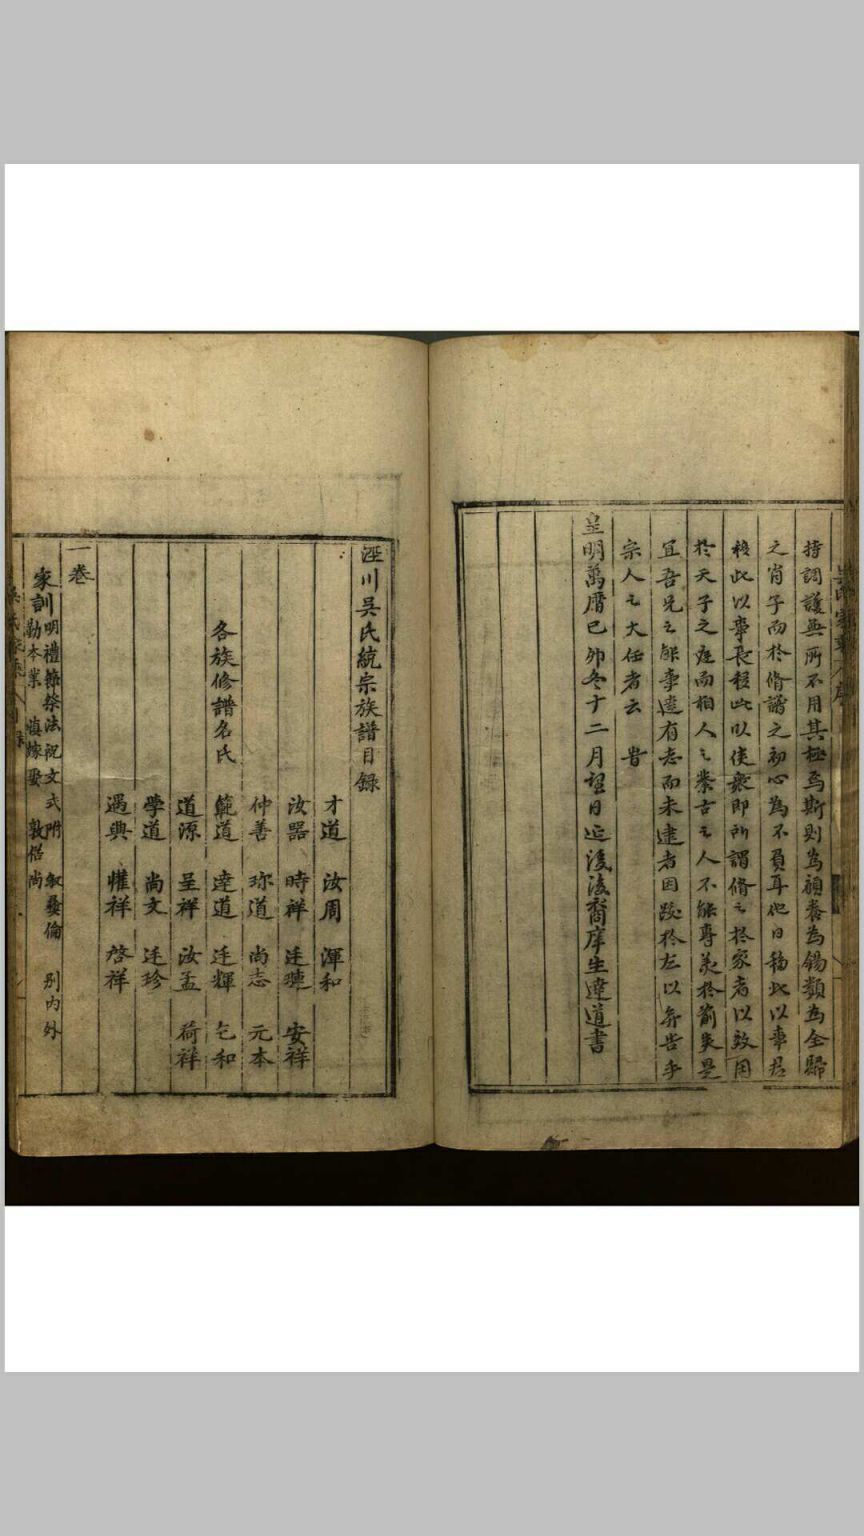 持調護無所不用其極焉斯則為頤養為錫類為全歸
之肖子而於脩譜之初心為不負耳他日移此以事君
移此以事長移此以使衆即所謂脩之於家者以效用
於天子之庭而相人之業古之人不能專美於前矣是
宜吾兄之能事逺有志而未逮者因跋於左以弁告乎
宗人之大任者云 旹
皇明萬曆己卯冬十二月望日廵後法裔庠生達道書
涇川吳氏統宗族譜目録
才道 汝周 渾和
汝器 時祥 廷璉 安祥
仲善 珎道 尚志 元本
各族修譜名氏 範道 達道 廷輝 乞和
道源 呈祥 汝孟 荷祥
學道 尚文 廷珍
遇興 惟祥 啓祥
一卷
家訓 明禮節 祭法祝文式附 叙彝倫 别内外
勤本業 慎嫁娶 敦偕尚